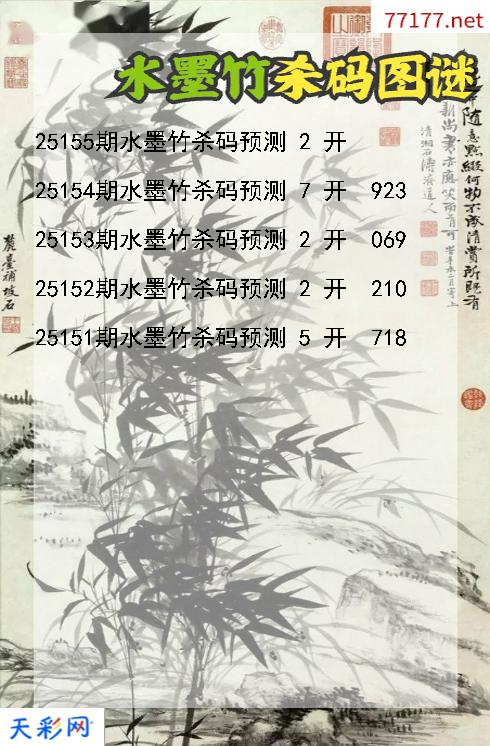 77177.net
水墨竹杀码图谜
25155期水墨竹杀码预测 2 开
25154期水墨竹杀码预测 7 开 923
25153期水墨竹杀码预测 2 开 069
25152期水墨竹杀码预测 2 开 210
25151期水墨竹杀码预测 5 开 718
随意點綴何物不成清賞所既有
清湘石濤濟道人
天彩网